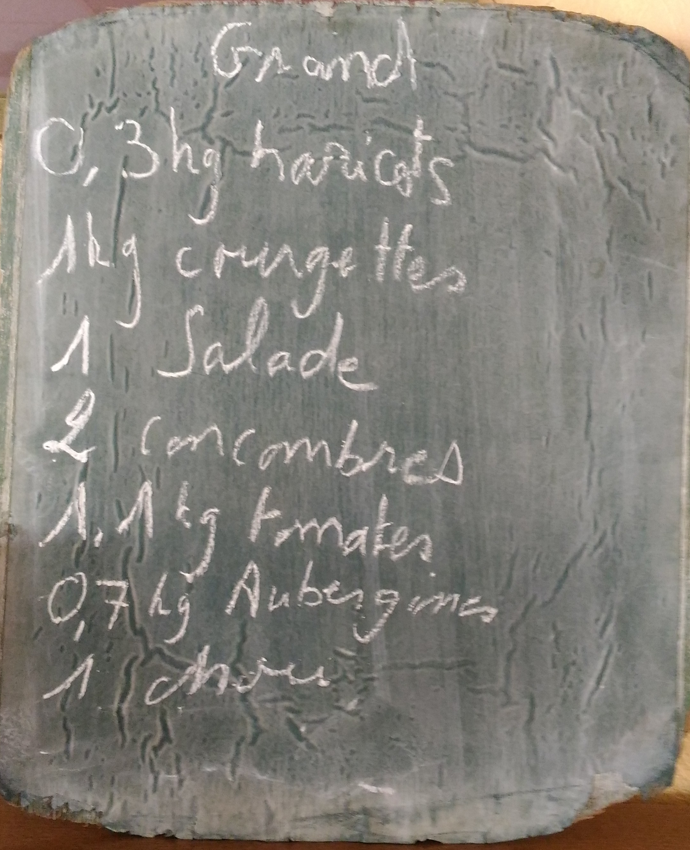 Grand
0,3 kg haricots
1 kg courgettes
1 Salade
2 concombres
1,1 kg tomates
0,7 kg Aubergines
1 chou